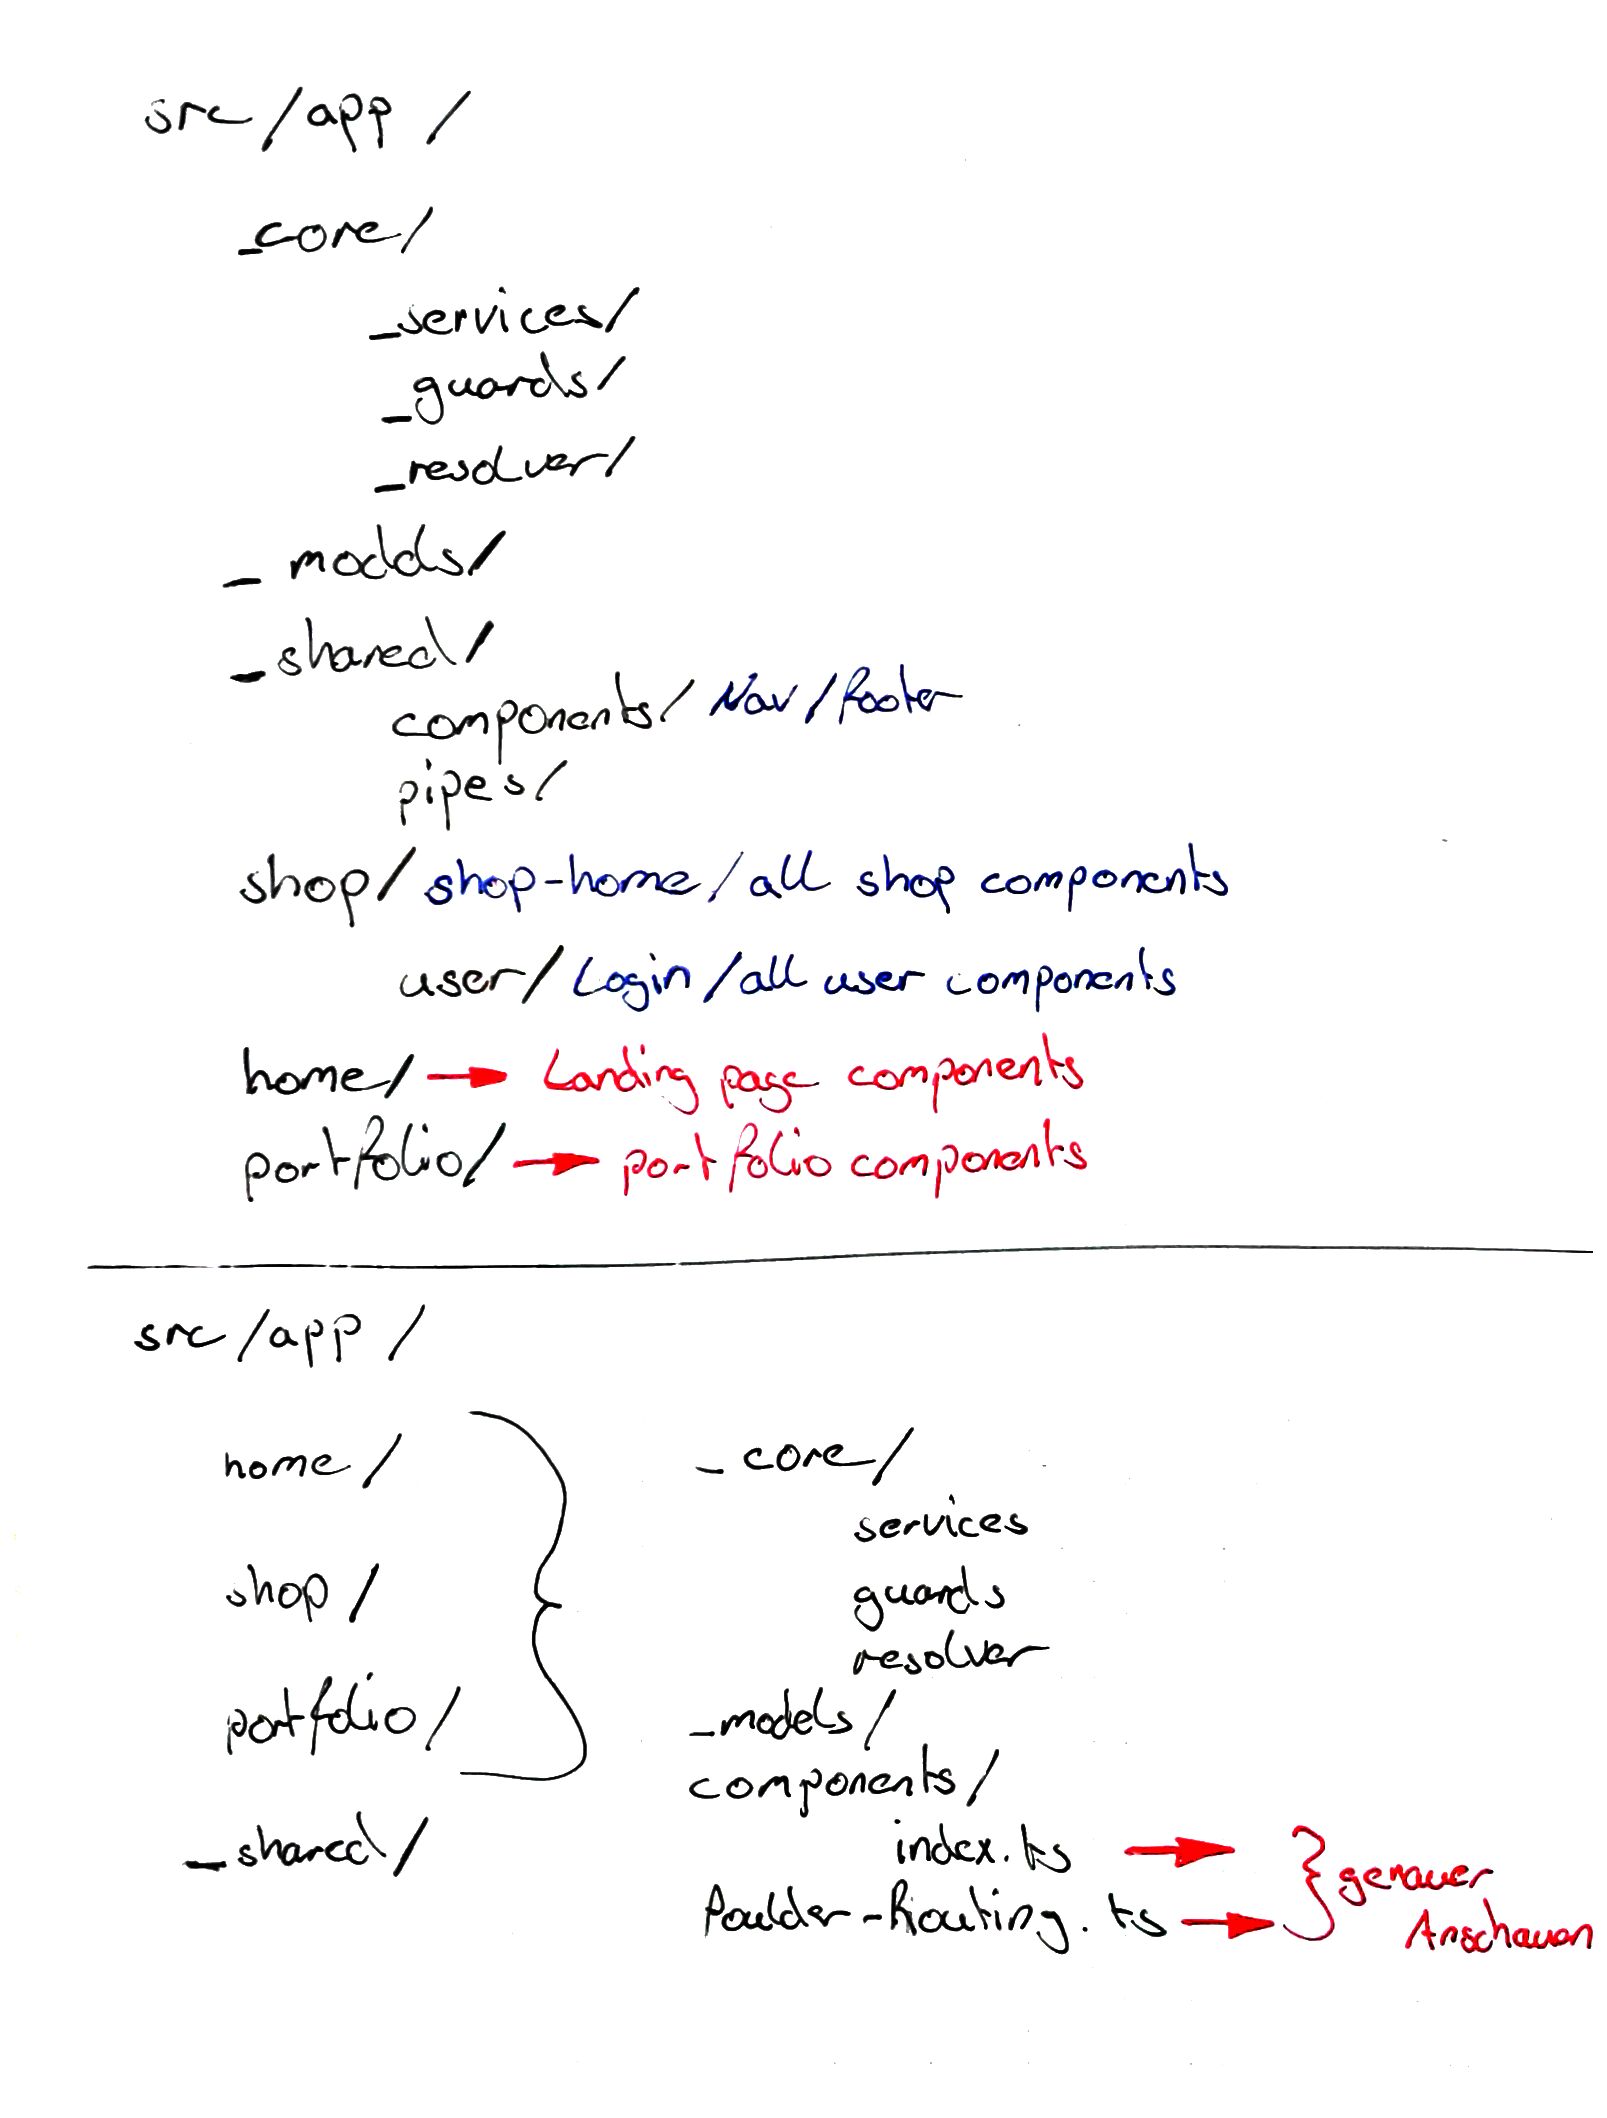 src/app/
_core/
_services/
_guards/
_resolver/
_models/
_shared/
components/ Nav/footer
pipes/
shop/ shop-home/all shop components
user/ Login/all user components
home/ → Landing page components
portfolio/ → portfolio components
src/app/
home/
shop/
portfolio/
_shared/
_core/
services
guards
resolver
_models/
components/
index.ts →
-Routing.ts →
genauer
Anschauen